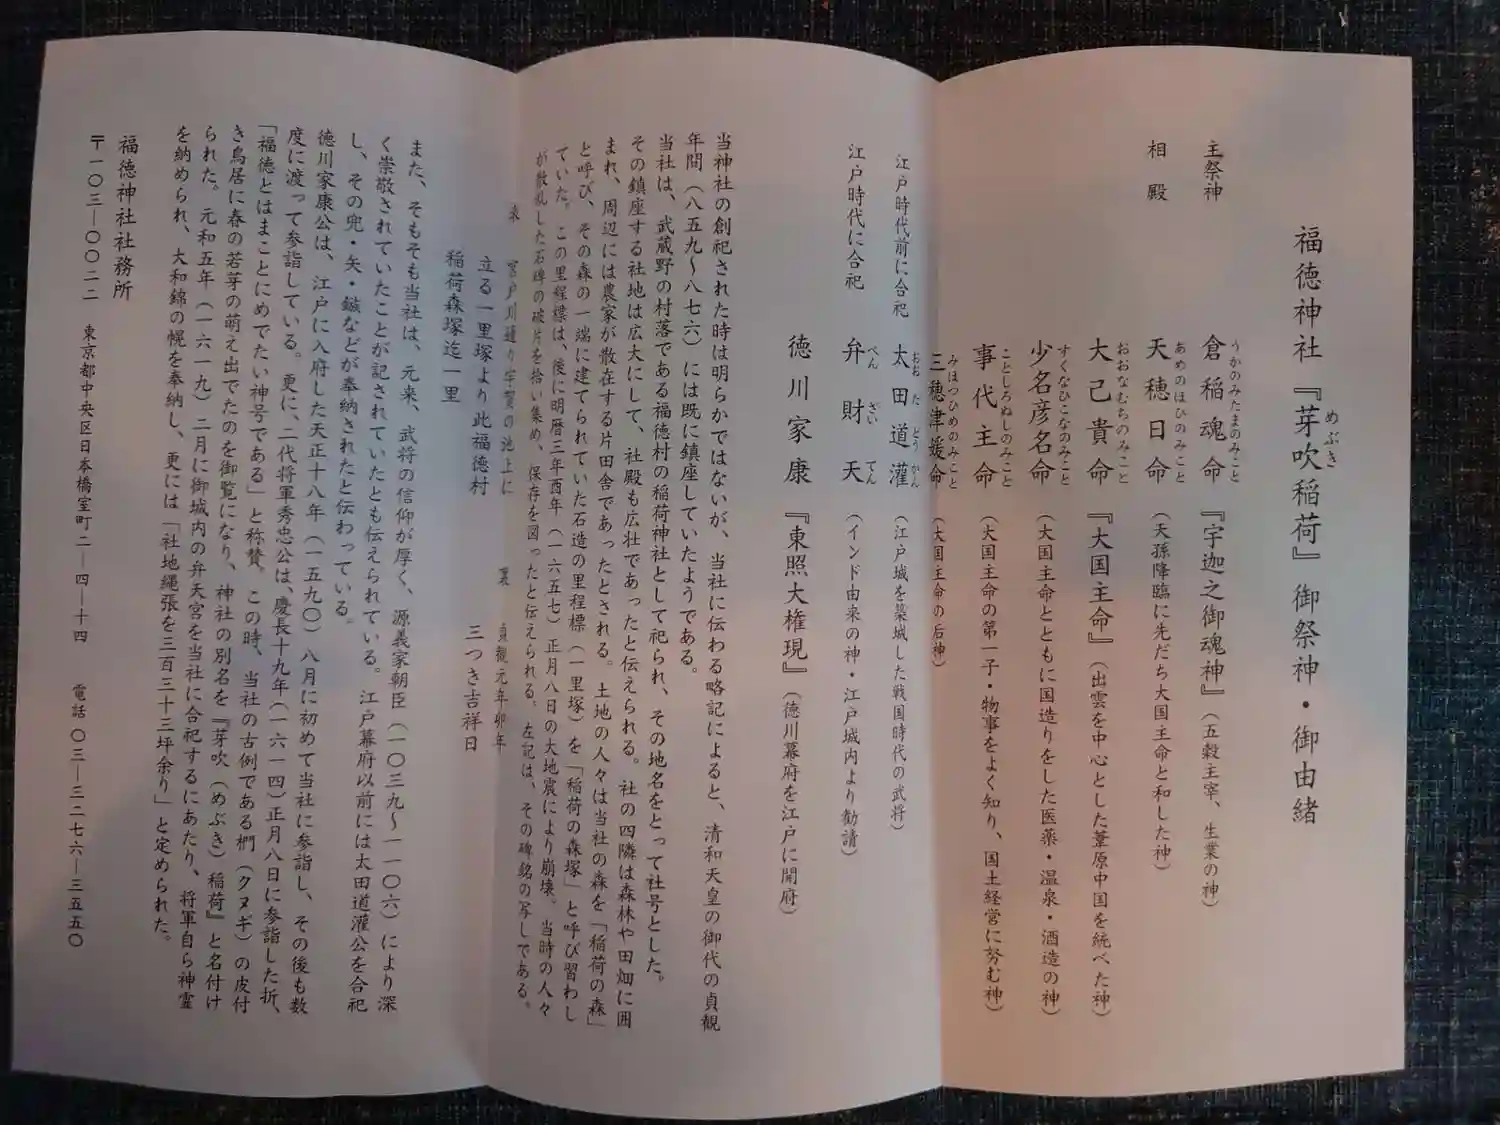 福徳神社『芽吹稲荷』御祭神・御由緒
めぶき
主祭神
倉稲魂命『宇迦之御魂神』（五穀主宰、生業の神）
うかのみたまのみこと
相殿
天穂日命（天孫降臨に先だち大国主命と和した神）
あめのほひのみこと
大己貴命『大国主命』（出雲を中心とした葦原中国を統べた神）
おおなむちのみこと
少名彦名命（大国主命とともに国造りをした医薬・温泉・酒造の神）
すくなひこなのみこと
事代主命（大国主命の第一子・物事をよく知り、国土経営に努む神）
ことしろぬしのみこと
三穂津媛命（大国主命の后神）
みほつひめのみこと
江戸時代前に合祀
太田道灌（江戸城を築城した戦国時代の武将）
おおたどうかん
江戸時代に合祀
弁財天（インド由来の神・江戸城内より勧請）
べんざいてん
徳川家康『東照大権現』（徳川幕府を江戸に開府）
当神社の創祀された時は明らかではないが、当社に伝わる略記によると、清和天皇の御代の貞観
年間（八五九〜八七六）には既に鎮座していたようである。
当社は、武蔵野の村落である福徳村の稲荷神社として祀られ、その地名をとって社号とした。
その鎮座する社地は広大にして、社殿も広壮であったと伝えられる。社の四隣は森林や田畑に囲
まれ、周辺には農家が散在する片田舎であったとされる。土地の人々は当社の森を「稲荷の森」
と呼び、その森の一端に建てられていた石造の里程標（一里塚）を「稲荷の森塚」と呼び習わし
ていた。この里程標は、後に明暦三年酉年（一六五七）正月八日の大地震により崩壊。当時の人々
が散乱した石碑の破片を拾い集め、保存を図ったと伝えられる。左記は、その碑銘の写しである。
表　宮戸川通り宇賀の池上に
立る一里塚より此福徳村
稲荷森塚迄一里
裏　貞観元年卯年
三つき吉祥日
また、そもそも当社は、元来、武将の信仰が厚く、源義家朝臣（一〇三九〜一一〇六）により深
く崇敬されていたことが記されていたとも伝えられている。江戸幕府以前には太田道灌公を合祀
し、その兜・矢・鏃などが奉納されたと伝わっている。
徳川家康公は、江戸に入府した天正十八年（一五九〇）八月に初めて当社に参詣し、その後も数
度に渡って参詣している。更に、二代将軍秀忠公は、慶長十九年（一六一四）正月八日に参詣した折、
「福徳とはまことにめでたい神号である」と称賛。この時、当社の古例である椚（クヌギ）の皮付
き鳥居に春の若芽の萌え出でたのを御覧になり、神社の別名を『芽吹（めぶき）稲荷』と名付け
られた。元和五年（一六一九）二月に御城内の弁天宮を当社に合祀するにあたり、将軍自ら神霊
を納められ、大和錦の幌を奉納し、更には「社地縄張を三百三十三坪余り」と定められた。
福徳神社社務所
〒一〇三―〇〇二二　東京都中央区日本橋室町二―四―十四　電話〇三―三二七六―三五五〇